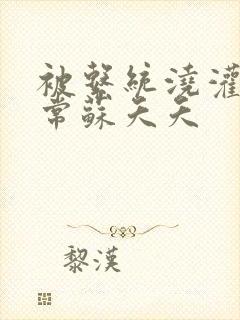 被繫統澆灌
常蘇夭夭
黎漢